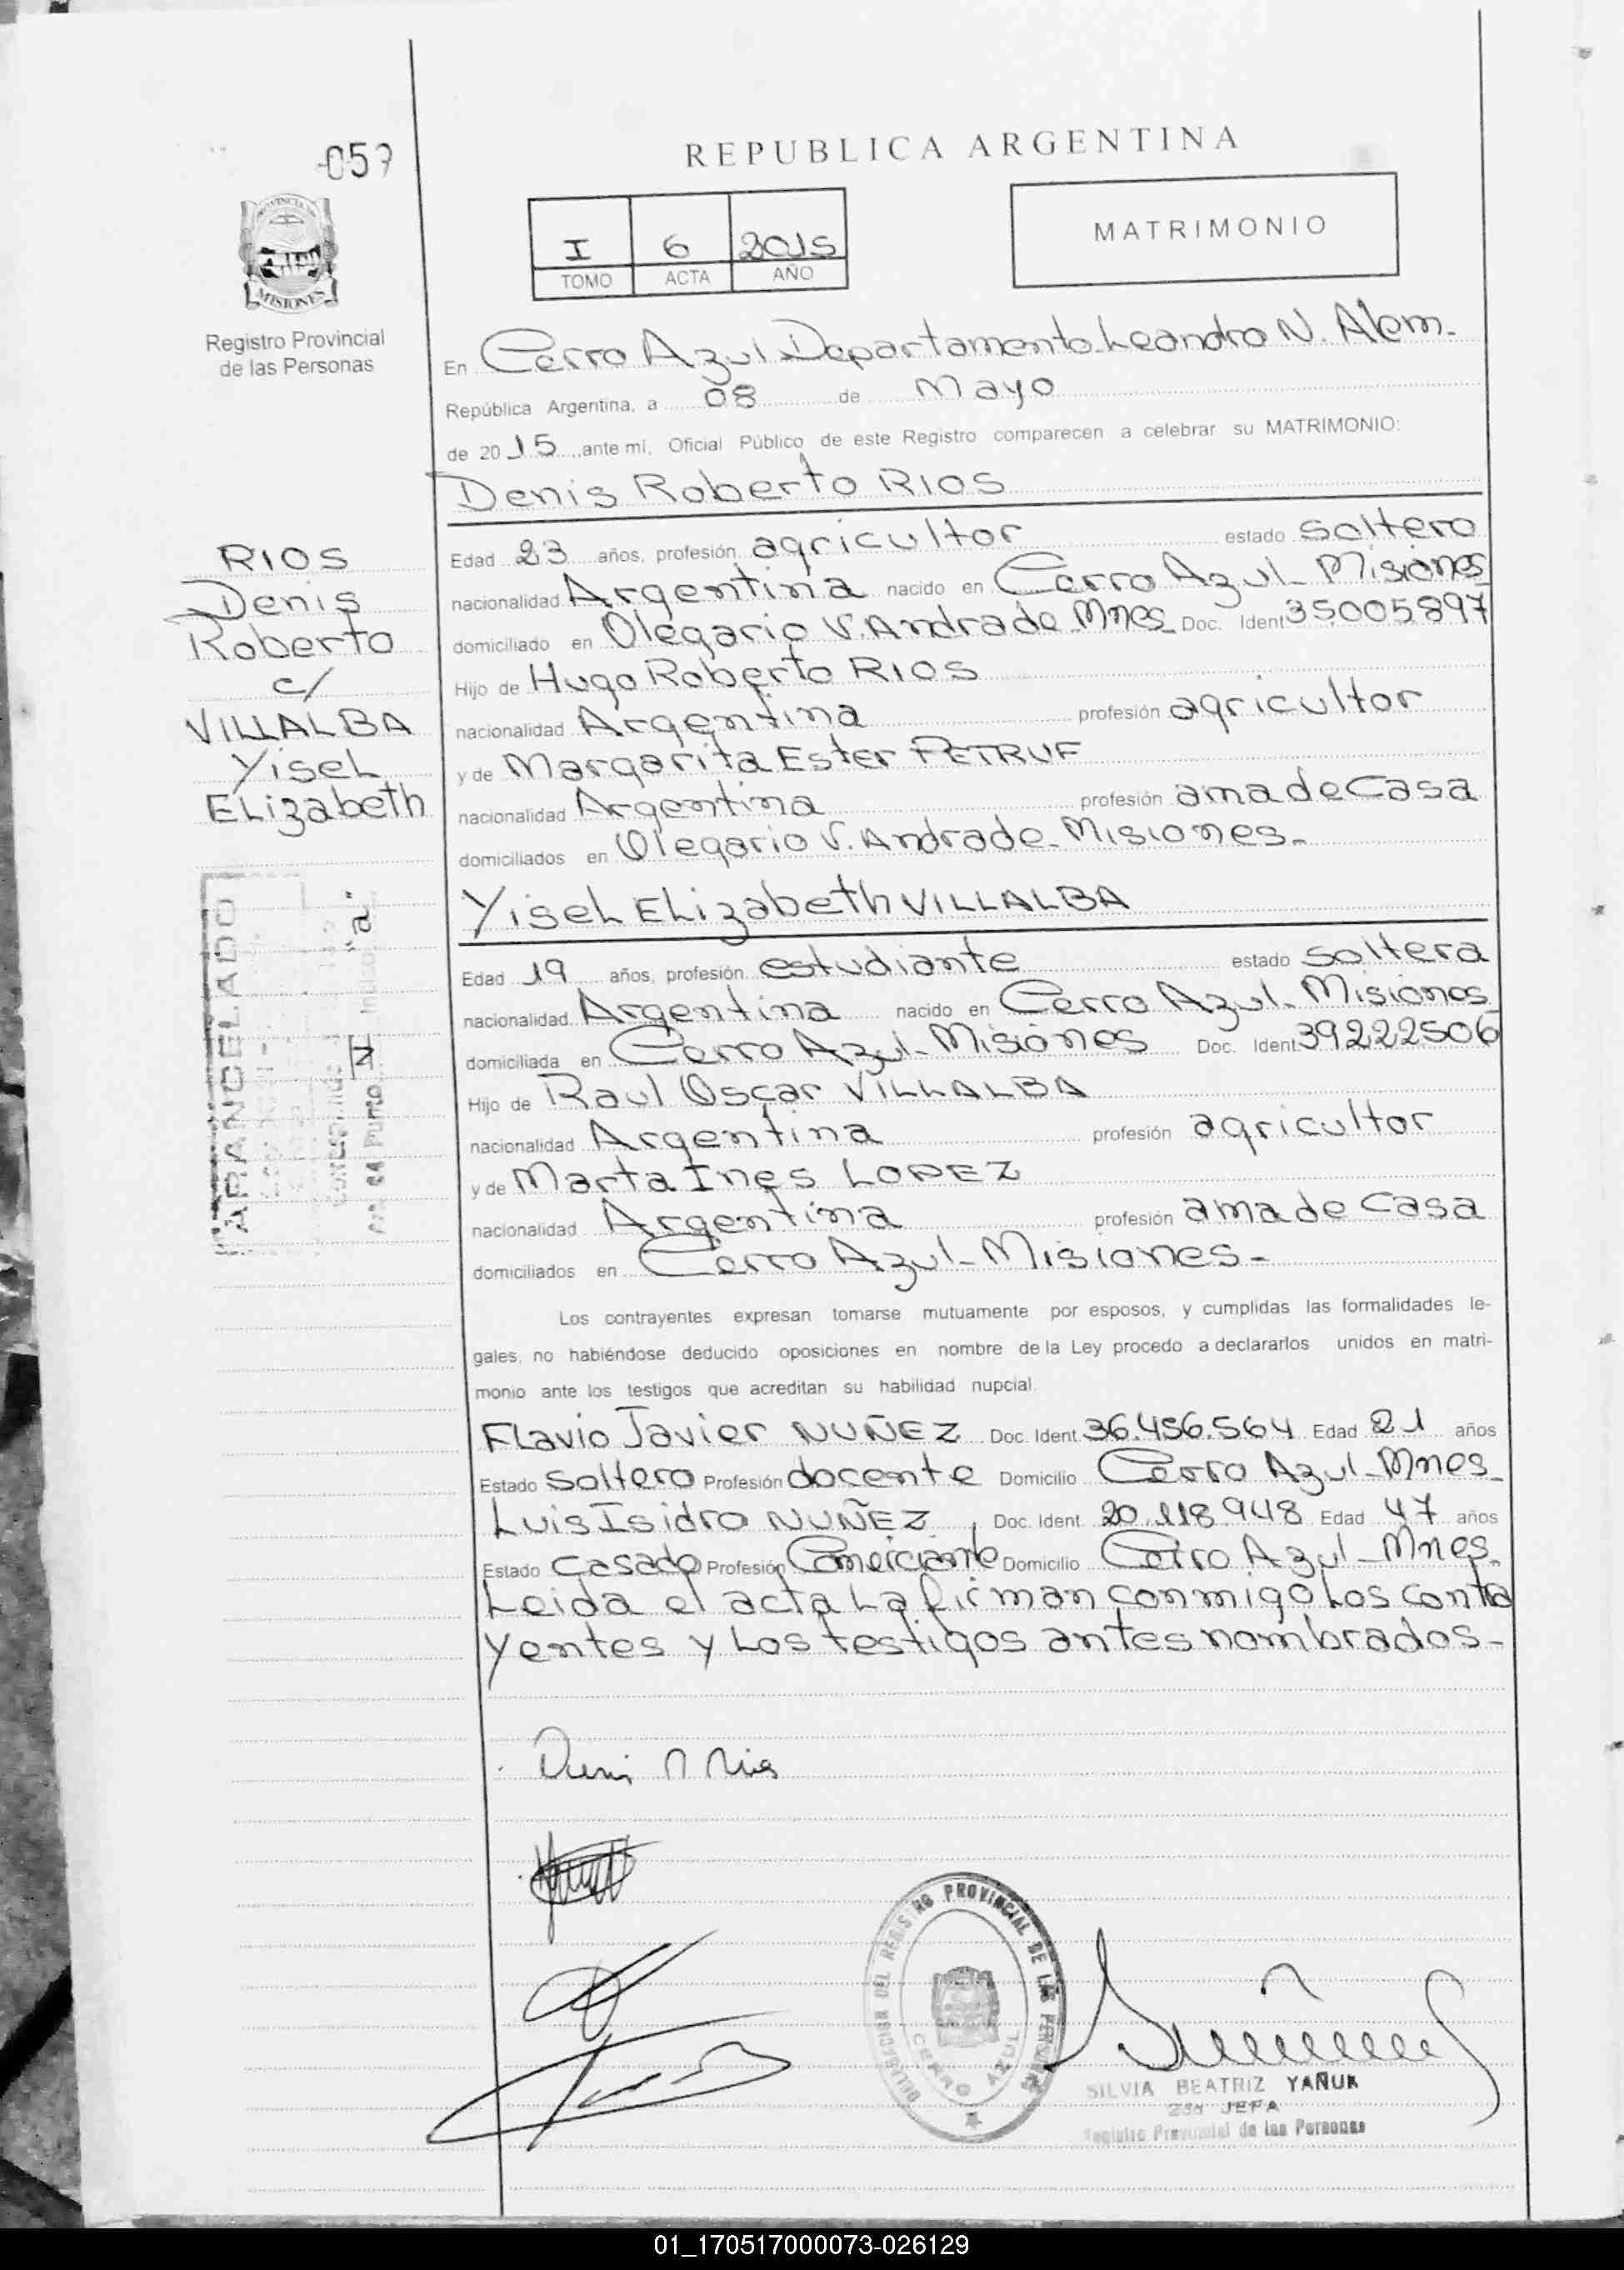 REPUBLICA ARGENTINA
PROVINCIA DE
MISIONES
Registro Provincial
de las Personas
I 6 2015
TOMO ACTA AÑO
MATRIMONIO
En Cerro Azul Departamento Leandro N. Alem.
República Argentina, a 08 de Mayo
de 2015 ante mí, Oficial Público de este Registro comparecen a celebrar su MATRIMONIO:
Denis Roberto RIOS
Edad 23 años, profesión agricultor estado soltero
nacionalidad Argentina nacido en Cerro Azul - Misiones
domiciliado en Olegario V. Andrade - Mnes Doc. Ident 35005897
Hijo de Hugo Roberto RIOS
nacionalidad Argentina profesión agricultor
y de Margarita Ester PETRUF
nacionalidad Argentina profesión ama de Casa
domiciliados en Olegario V. Andrade - Misiones -
RIOS
Denis
Roberto
c/
VILLALBA
Yisel
Elizabeth
Yisel Elizabeth VILLALBA
Edad 19 años, profesión estudiante estado soltera
nacionalidad Argentina nacido en Cerro Azul - Misiones
domiciliada en Cerro Azul - Misiones Doc. Ident 39222506
Hijo de Raul Oscar VILLALBA
nacionalidad Argentina profesión agricultor
y de Marta Ines LOPEZ
nacionalidad Argentina profesión ama de Casa
domiciliados en Cerro Azul - Misiones -
ARANCELADO
Punto N Inciso "a"
Los contrayentes expresan tomarse mutuamente por esposos, y cumplidas las formalidades le-
gales, no habiéndose deducido oposiciones en nombre de la Ley procedo a declararlos unidos en matri-
monio ante los testigos que acreditan su habilidad nupcial.
Flavio Javier NUÑEZ Doc. Ident. 36.456.564 Edad 21 años
Estado soltero Profesión docente Domicilio Cerro Azul - Mnes -
Luis Isidro NUÑEZ Doc. Ident 20.118.948 Edad 47 años
Estado Casado Profesión Comerciante Domicilio Cerro Azul - Mnes.
Leida el acta la firman conmigo los contra
yentes y los testigos antes nombrados -
DELEGACION DEL REGISTRO PROVINCIAL DE LAS PERSONAS
CERRO AZUL
SILVIA BEATRIZ YAÑUK
JEFA
Registro Provincial de las Personas
01_170517000073-026129